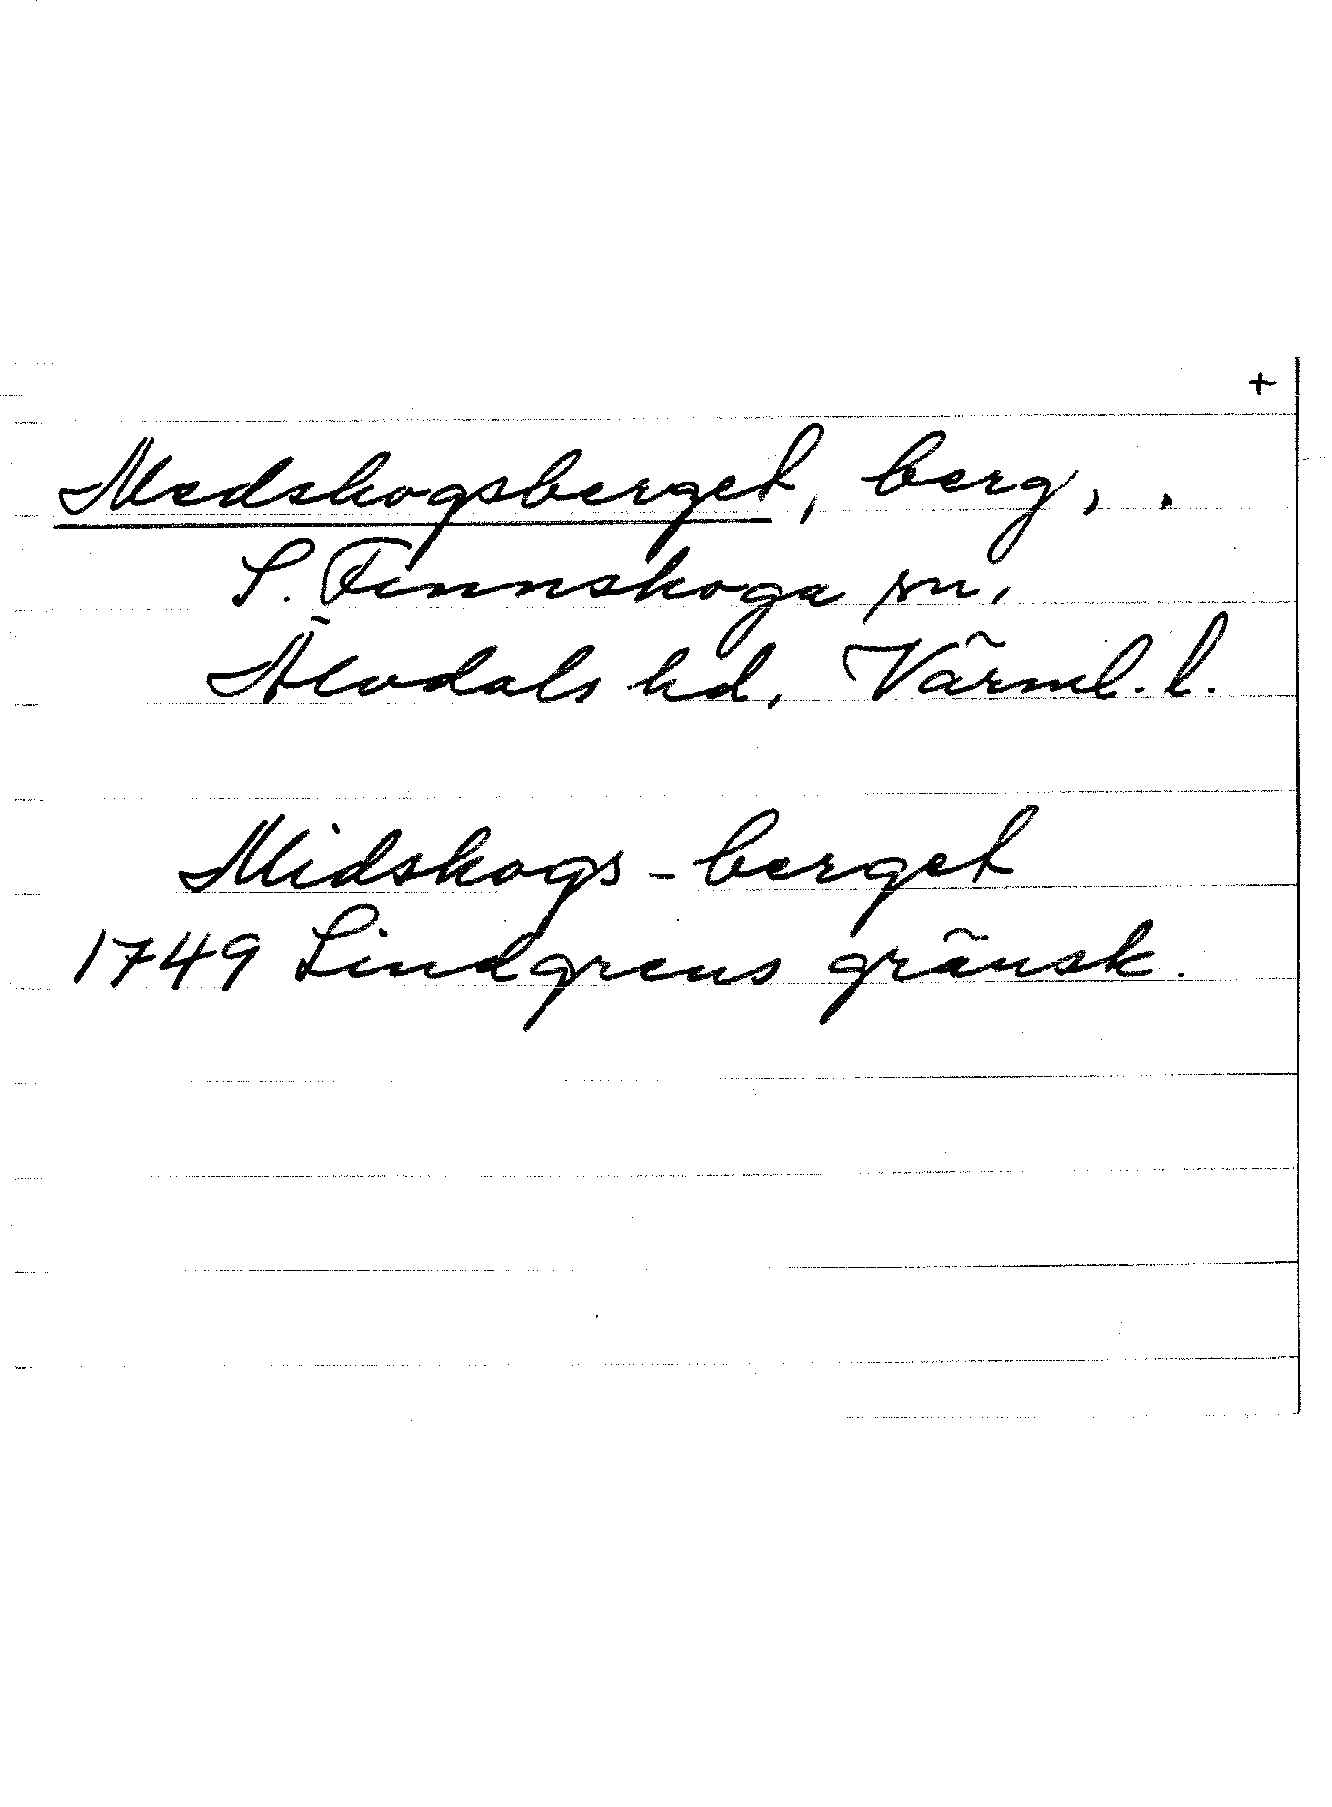 +
Medskogsberget, berg, .
S. Finnskoga sn,
Älvdals hd, Värml. l.
Midskogs-berget
1749 Lindgrens gränsk.